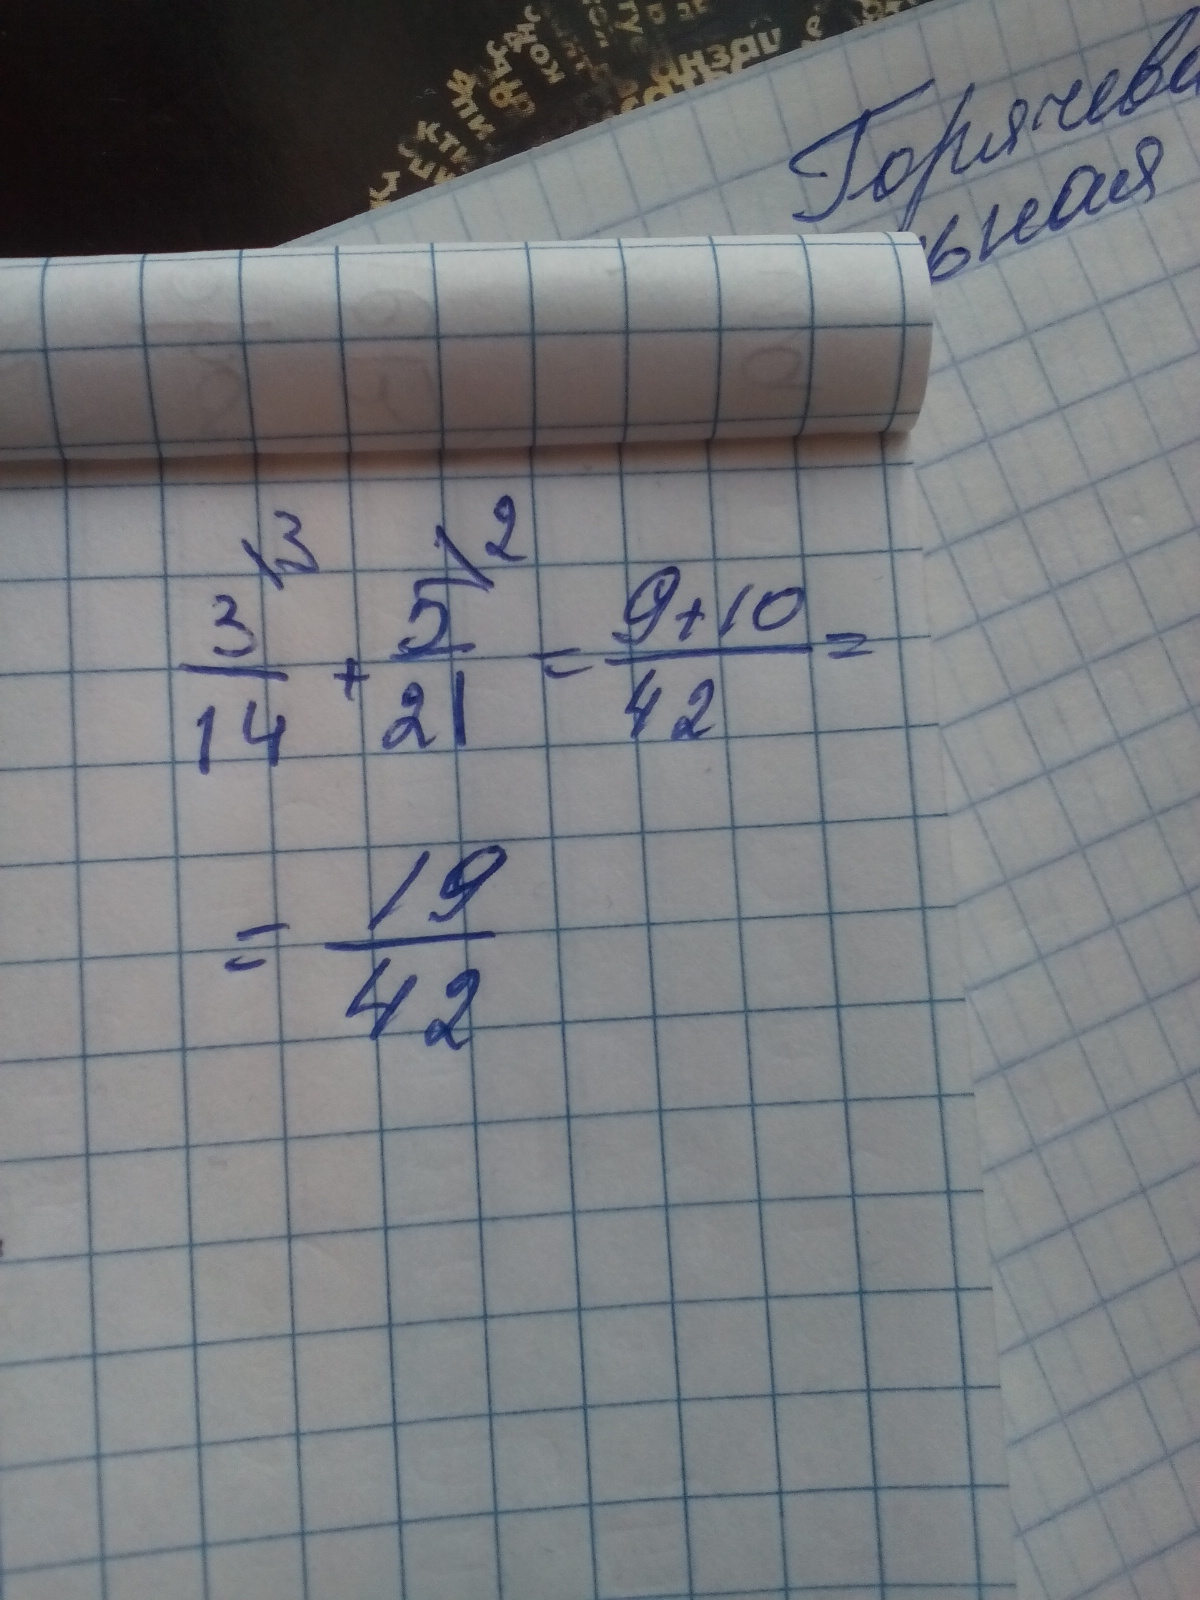 Горячева
ьная
3/14 \3 + 5/21 \2 = 9+10/42 =
= 19/42